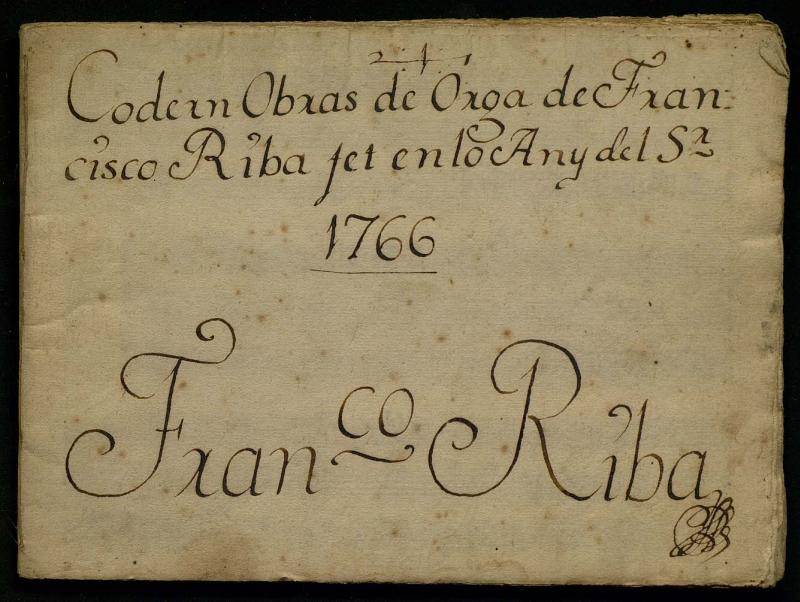 Codern Obras de Orga de Fran:
cisco Riba fet en lo Any del Sr
1766
Franco Riba